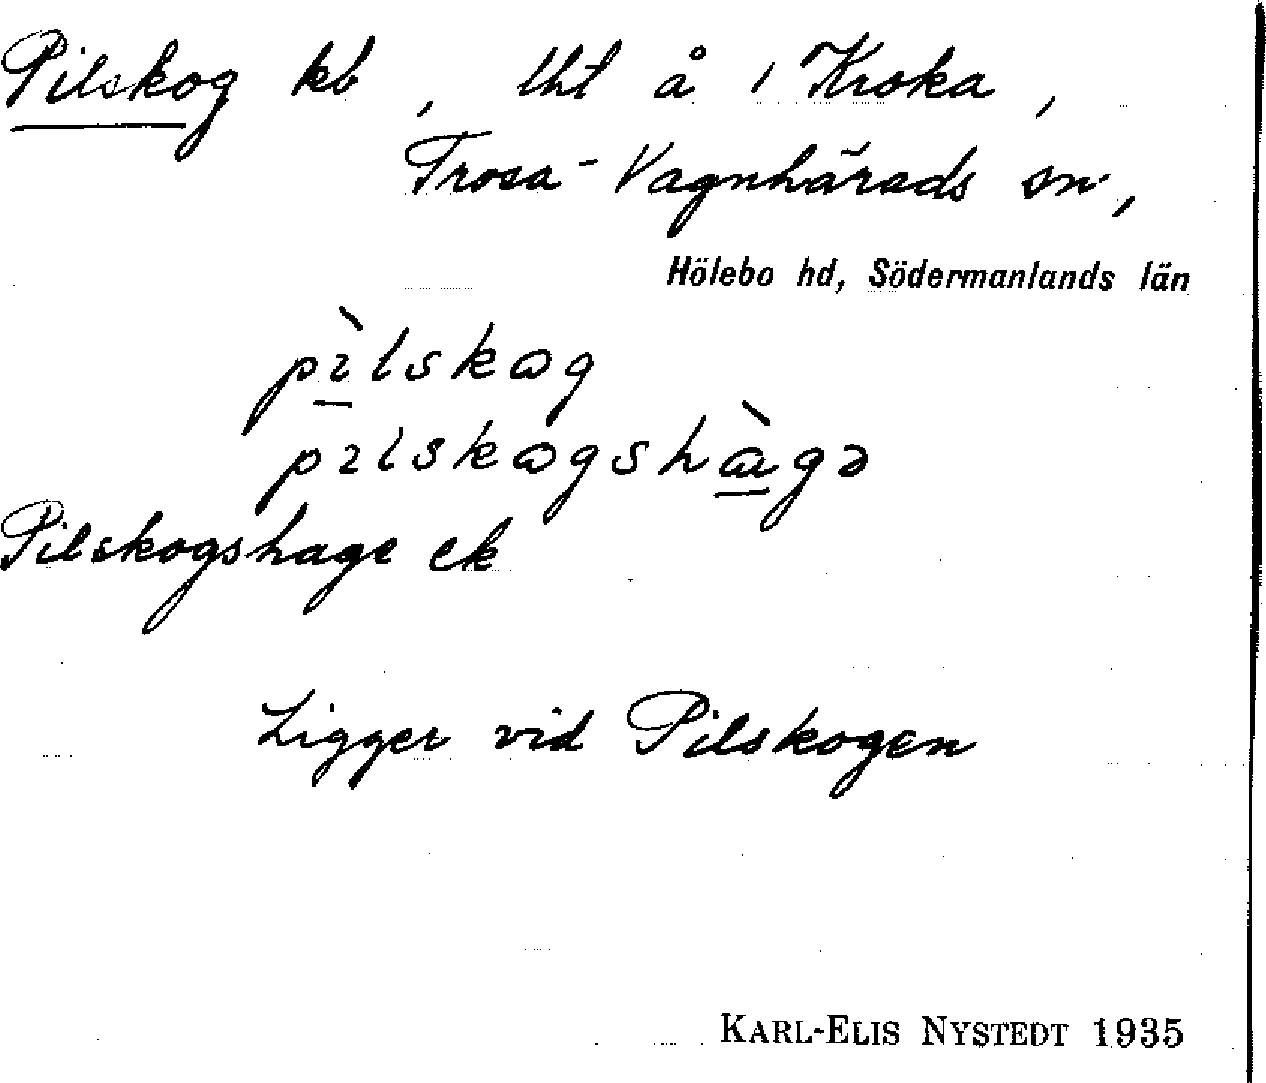 Pilskog kb, lht å 1 Kroka,
Trosa-Vagnhärads sn,
Hölebo hd, Södermanlands län
pìlskog
pilskogshàgə
Pilskogshage ek
Ligger vid Pilskogen
KARL-ELIS NYSTEDT 1935